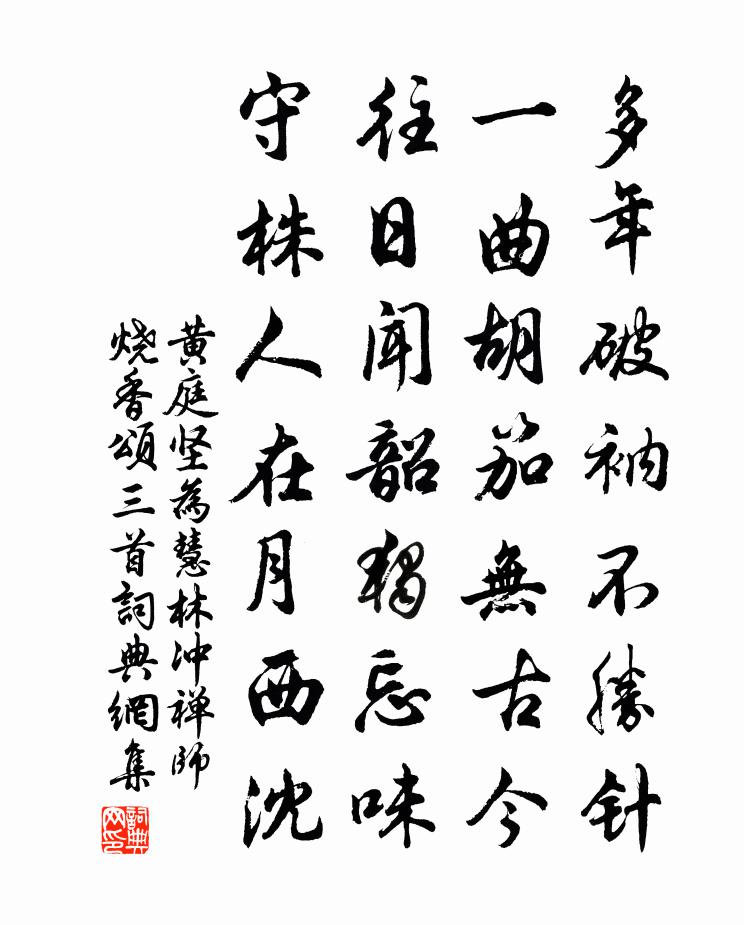 多年破衲不勝针
一曲胡笳無古今
往日闻韶獨忘味
守株人在月西沈
黄庭坚為慧林冲禅師
烧香頌三首詞典網集
詞典网印